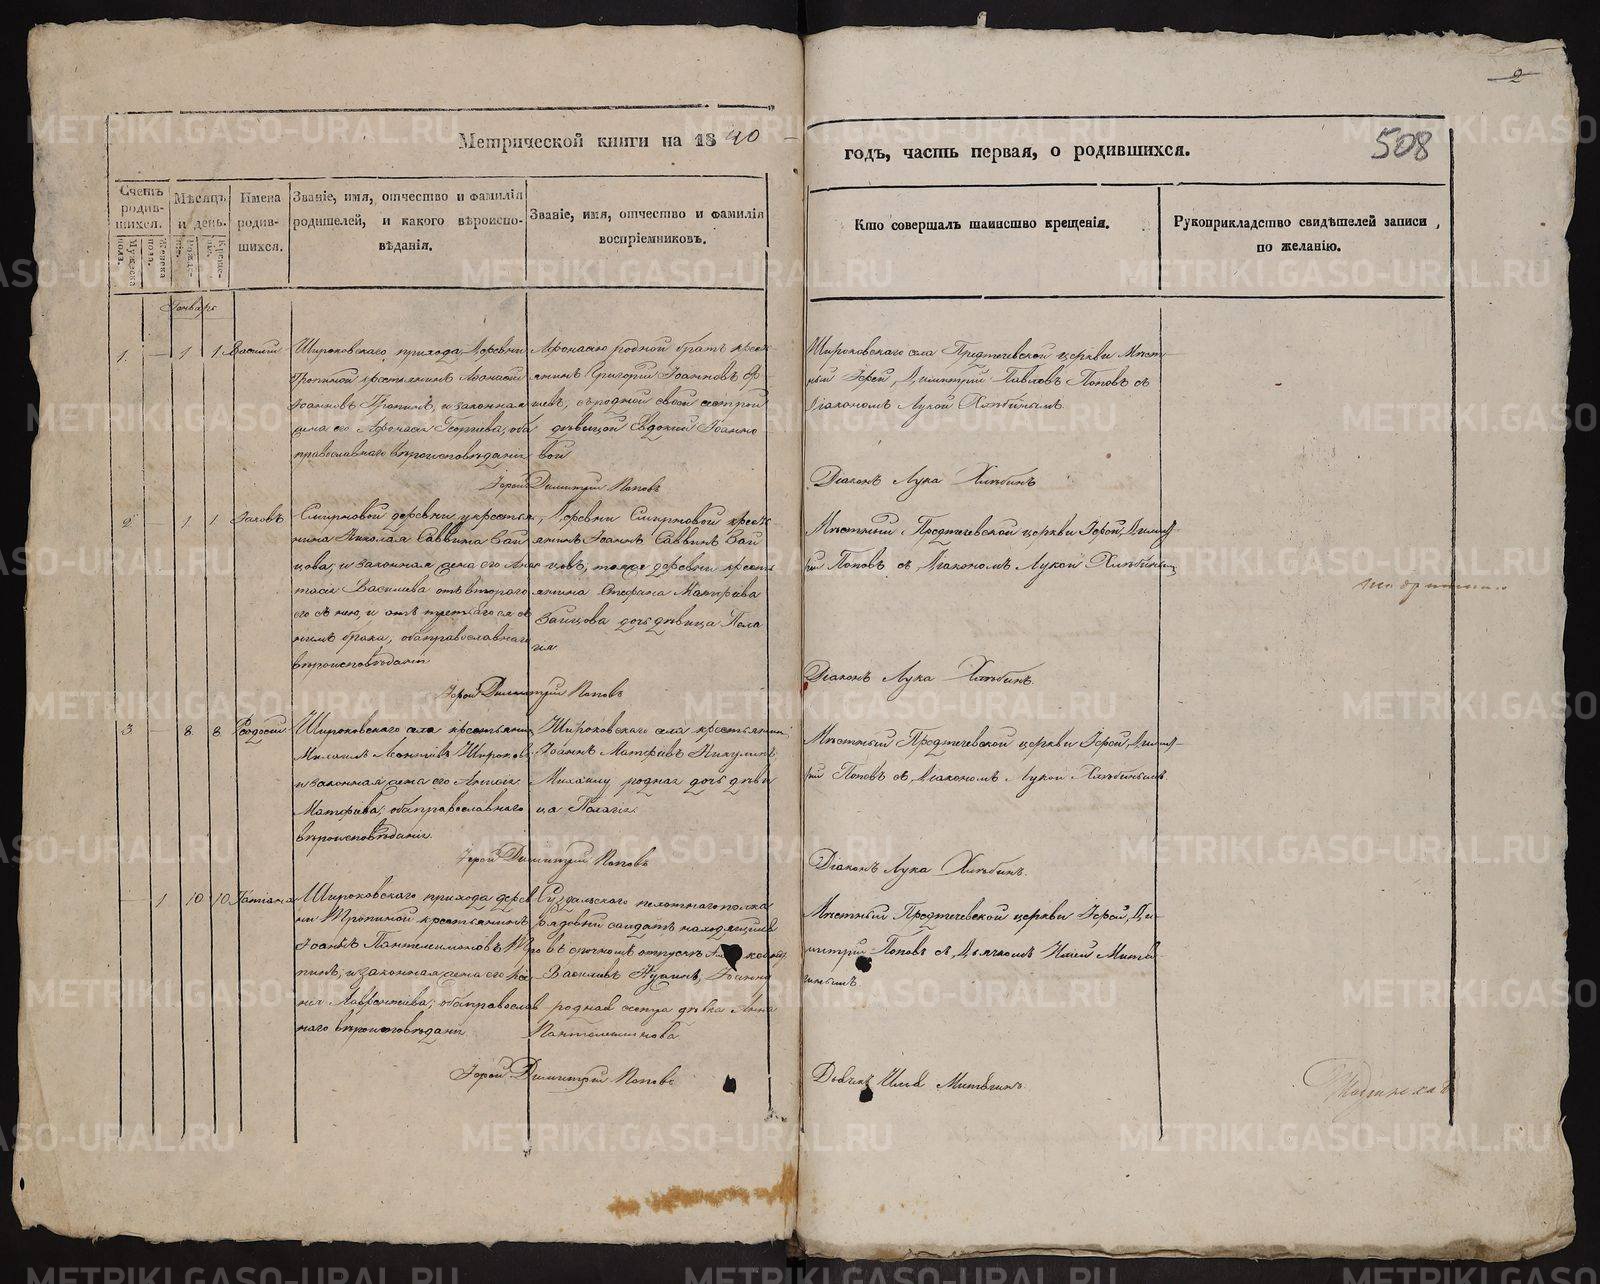 Метрической книги на 1840
годъ, часть первая, о родившихся.
508
2
Счетъ родив-шихся.
Мужеска пола.
Женска пола.
Мѣсяцъ и день.
Рожде-нія.
Креще-нія.
Имена родив-шихся.
Званіе, имя, отчество и фамилія
родителей, и какого вѣроиспо-
вѣданія.
Званіе, имя, отчество и фамилія
воспріемниковъ.
Кто совершалъ таинство крещенія.
Рукоприкладство свидѣтелей записи
по желанію.
Генварь
1. — 1 1 Василій
Широковскаго прихода, Деревни
Тропиной крестьянинъ Афонасій
Іоанновъ Тропинъ, и законная
жена его Георгіева, оба
православнаго вѣроисповѣданія
Афонасію родной братъ кресть
янинъ Григорій Іоанновъ
съ родной своей сестрой
дѣвицей Евдокіей Іоанно
вой
Іерей Димитрій Поповъ
Широковскаго села Предтечевской церкви Мѣст
ный Іерей, Димитрій Павловъ Поповъ съ
Діакономъ Лукой Хлѣбинымъ.
Діаконъ Лука Хлѣбинъ
2. — 1 1 Іаковъ
Смирновой деревни, у крестья
нина Николая Саввина Зай
цова, и законная жена его Анас
тасія Васильева отъ втораго
его съ нею, и отъ третьяго ея съ
нимъ брака, оба православнаго
вѣроисповѣданія
Деревни Смирновой кресть
янинъ Іоаннъ Саввинъ Зай
цовъ, тояже деревни кресть
янина Стефана Матфѣева
Зайцова дочь дѣвица Пела
гія.
Іерей Димитрій Поповъ
Мѣстный Предтечевской церкви Іерей, Димит
рій Поповъ съ Діакономъ Лукой Хлѣбинымъ
Діаконъ Лука Хлѣбинъ.
3 — 8 8 Ѳеодосій
Широковскаго села крестьянинъ
Широковъ
и законная жена его
Матфѣева, оба православнаго
вѣроисповѣданія.
Широковскаго села крестьянинъ
Іоаннъ Матфѣевъ Никулинъ,
Михаилу родная дочь дѣви
ца Пелагія.
Іерей Димитрій Поповъ
Мѣстный Предтечевской церкви Іерей, Димит
рій Поповъ съ Діакономъ Лукой Хлѣбинымъ
Діаконъ Лука Хлѣбинъ.
— 1 10 10 Татіана
Широковскаго прихода дерев
ни Тропиной крестьянинъ
Іоаннъ Пантелеимоновъ Тро
пинъ, и законная жена его
Лаврентіева, оба православ
наго вѣроисповѣданія.
Суздальскаго пехотнаго полка
рядовый солдатъ находящійся
въ срочномъ отпускѣ
Васильевъ Іоанна
родная сестра дѣвка Анна
Пантелеимонова
Іерей Димитрій Поповъ
Мѣстный Предтечевской церкви Іерей, Ди
митрій Поповъ съ Дьячкомъ Иліей Митю
гинымъ.
Дьячекъ Илья Митюгинъ
METRIKI.GASO-URAL.RU